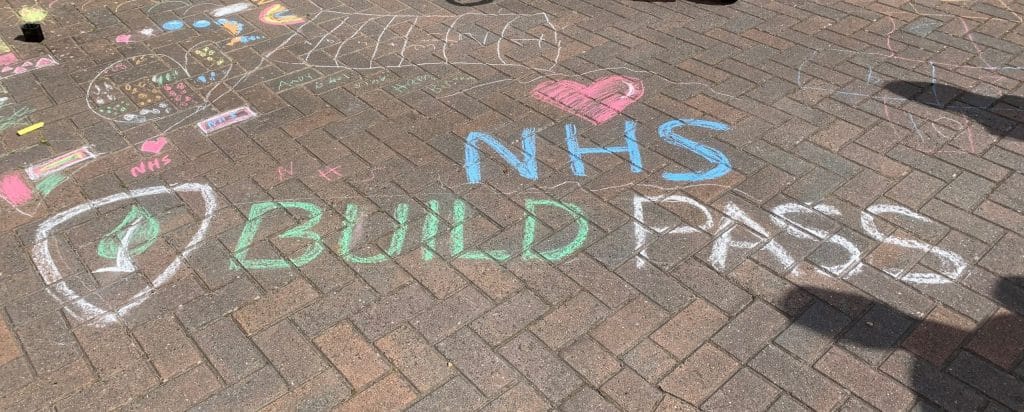 NHS
NHS
NHS
BUILD PASS